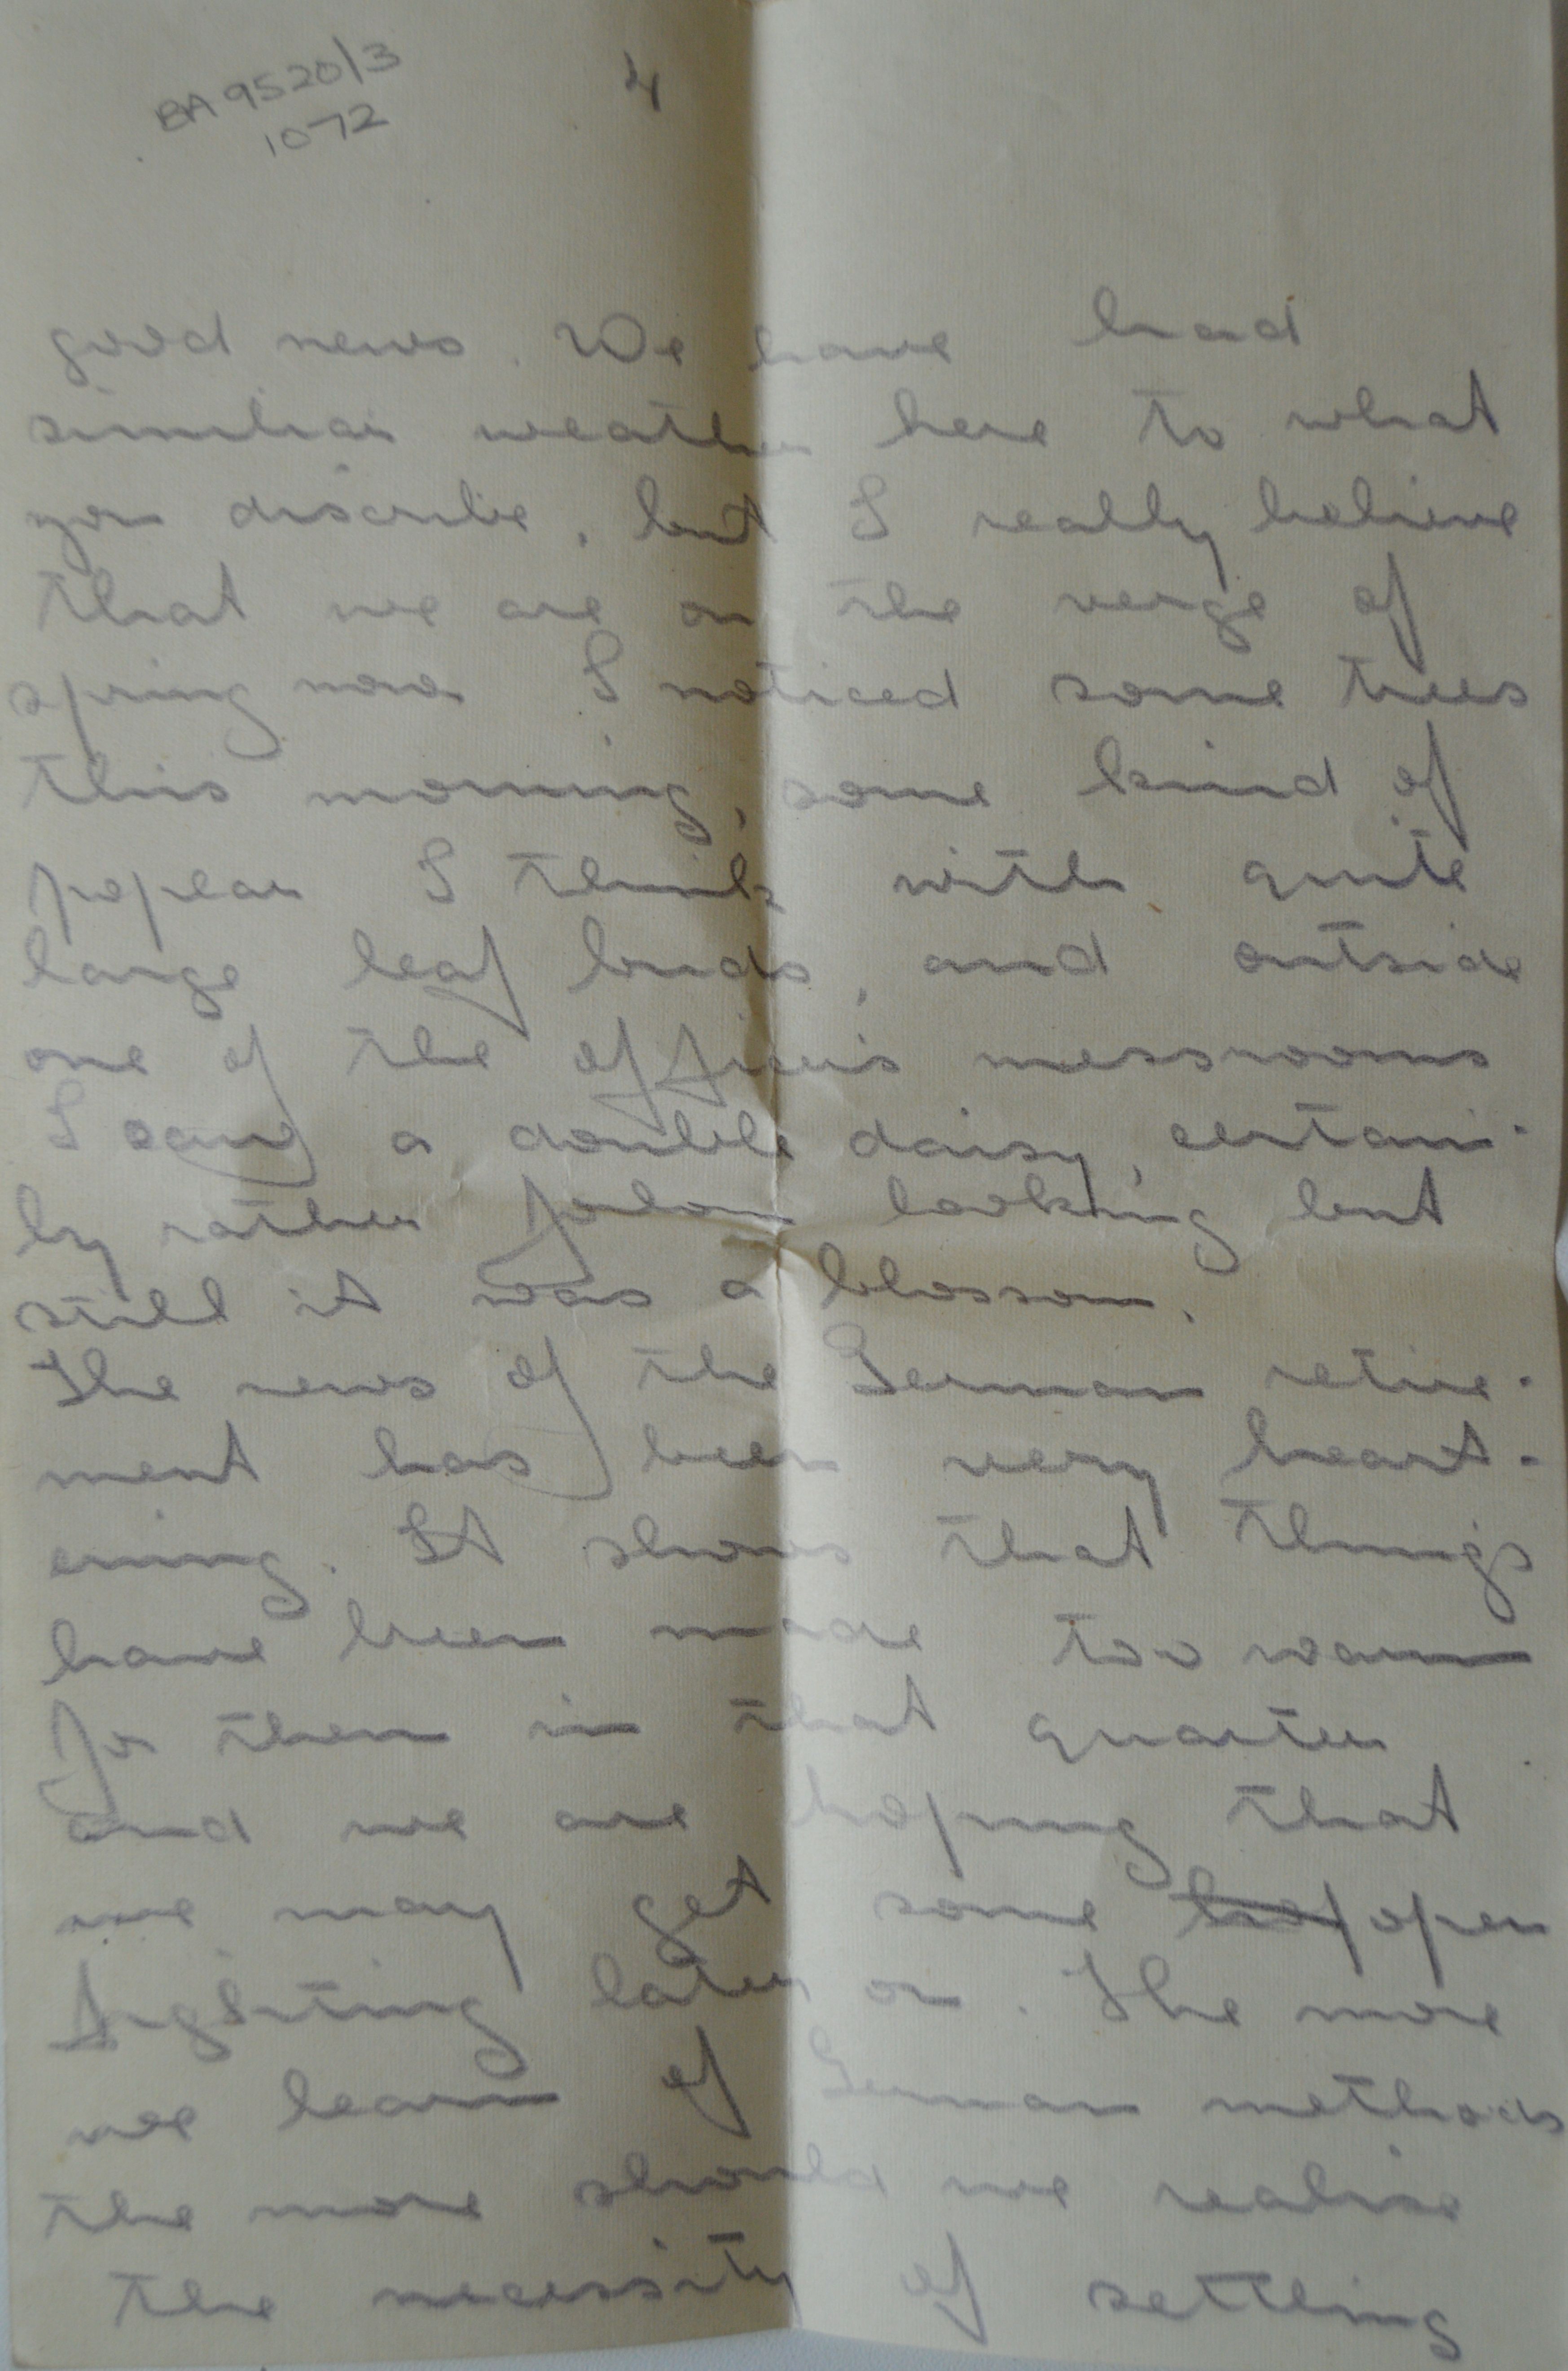 BA 9520/3
1072
4
good news. We have had
similiar weather here to what
you discribe, but I really believe
that we are on the verge of
spring now I noticed some trees
this morning, some kind of
poplar I think with quite
large leaf buds, and outside
one of the officer's messrooms
I saw a double daisy, certain-
ly rather forlorn looking but
still it was a blossom.
The news of the German retire-
ment has been very heart-
ening. It shows that things
have been made too warm
for them in that quarter
and we are hoping that
we may get some hop open
fighting later on. The more
we learn of German methods
the more should we realise
the necessity of settling